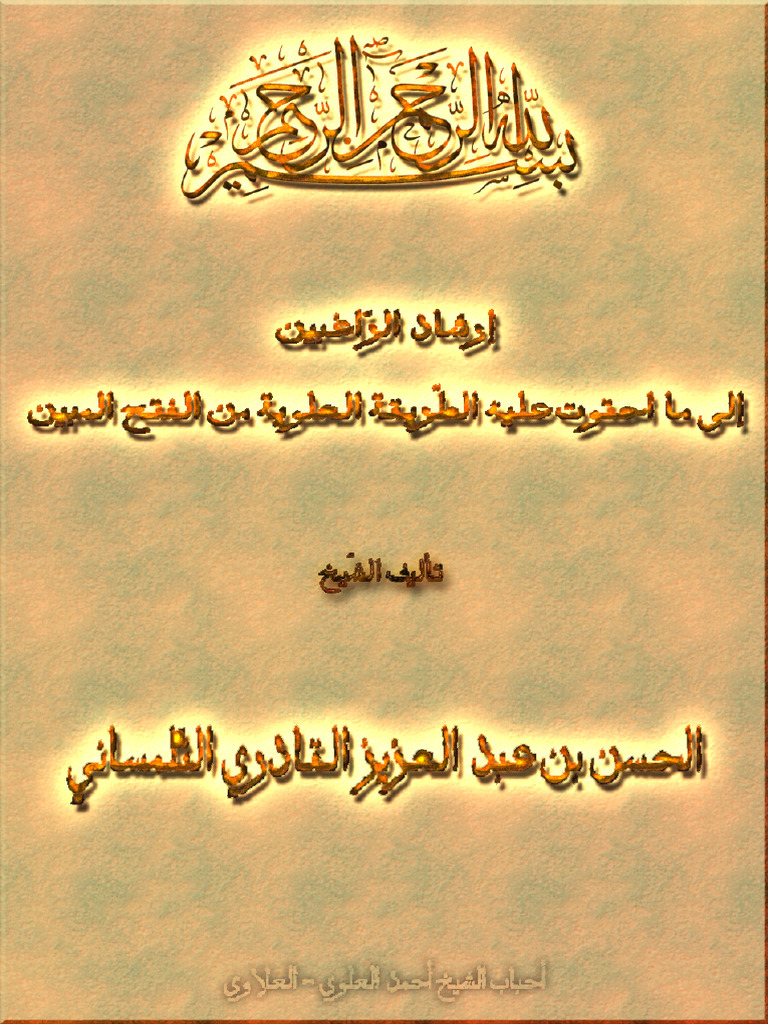 بسم الله الرحمن الرحيم
إرشاد الرّاغبين
إلى ما احتوت عليه الطّريقة العلوية من الفتح المبين
تأليف الشّيخ
الحسن بن عبد العزيز القادري التلمساني
أحباب الشيخ أحمد العلوي - العلاوي